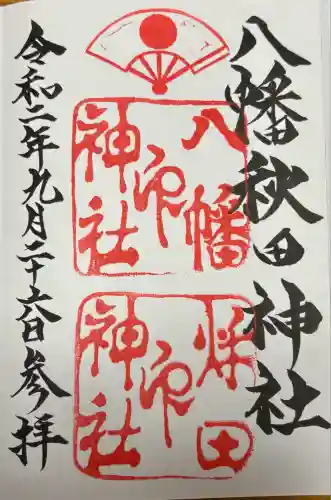 八幡秋田神社
八幡
神社印
秋田
神社印
令和二年九月二十六日参拝